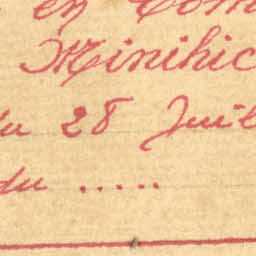 en Com
Minihic
du 28 Juil
du .....